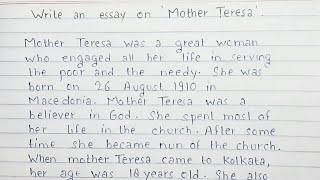 Write an essay on 'Mother Teresa'.
Mother Teresa was a great woman
who engaged all her life in serving
the poor and the needy. She was
born on 26 August 1910 in
Macedonia. Mother Teresa was a
believer in God. She spent most of
her life in the church. After some
time she became nun of the church.
When mother Teresa came to Kolkata,
her age was 18 years old. She also